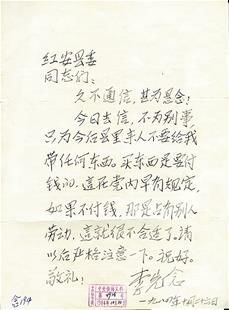 红安县委
同志们:
久不通信,甚为悬念!
今日去信,不为别事,
只为今后县里来人不要给我
带任何东西。买东西是要付
钱的,这在党内早有规定,
如果不付钱,那是占有别人
劳动,这就很不合适了。请
以后严格注意一下。祝好。
敬礼!
李先念